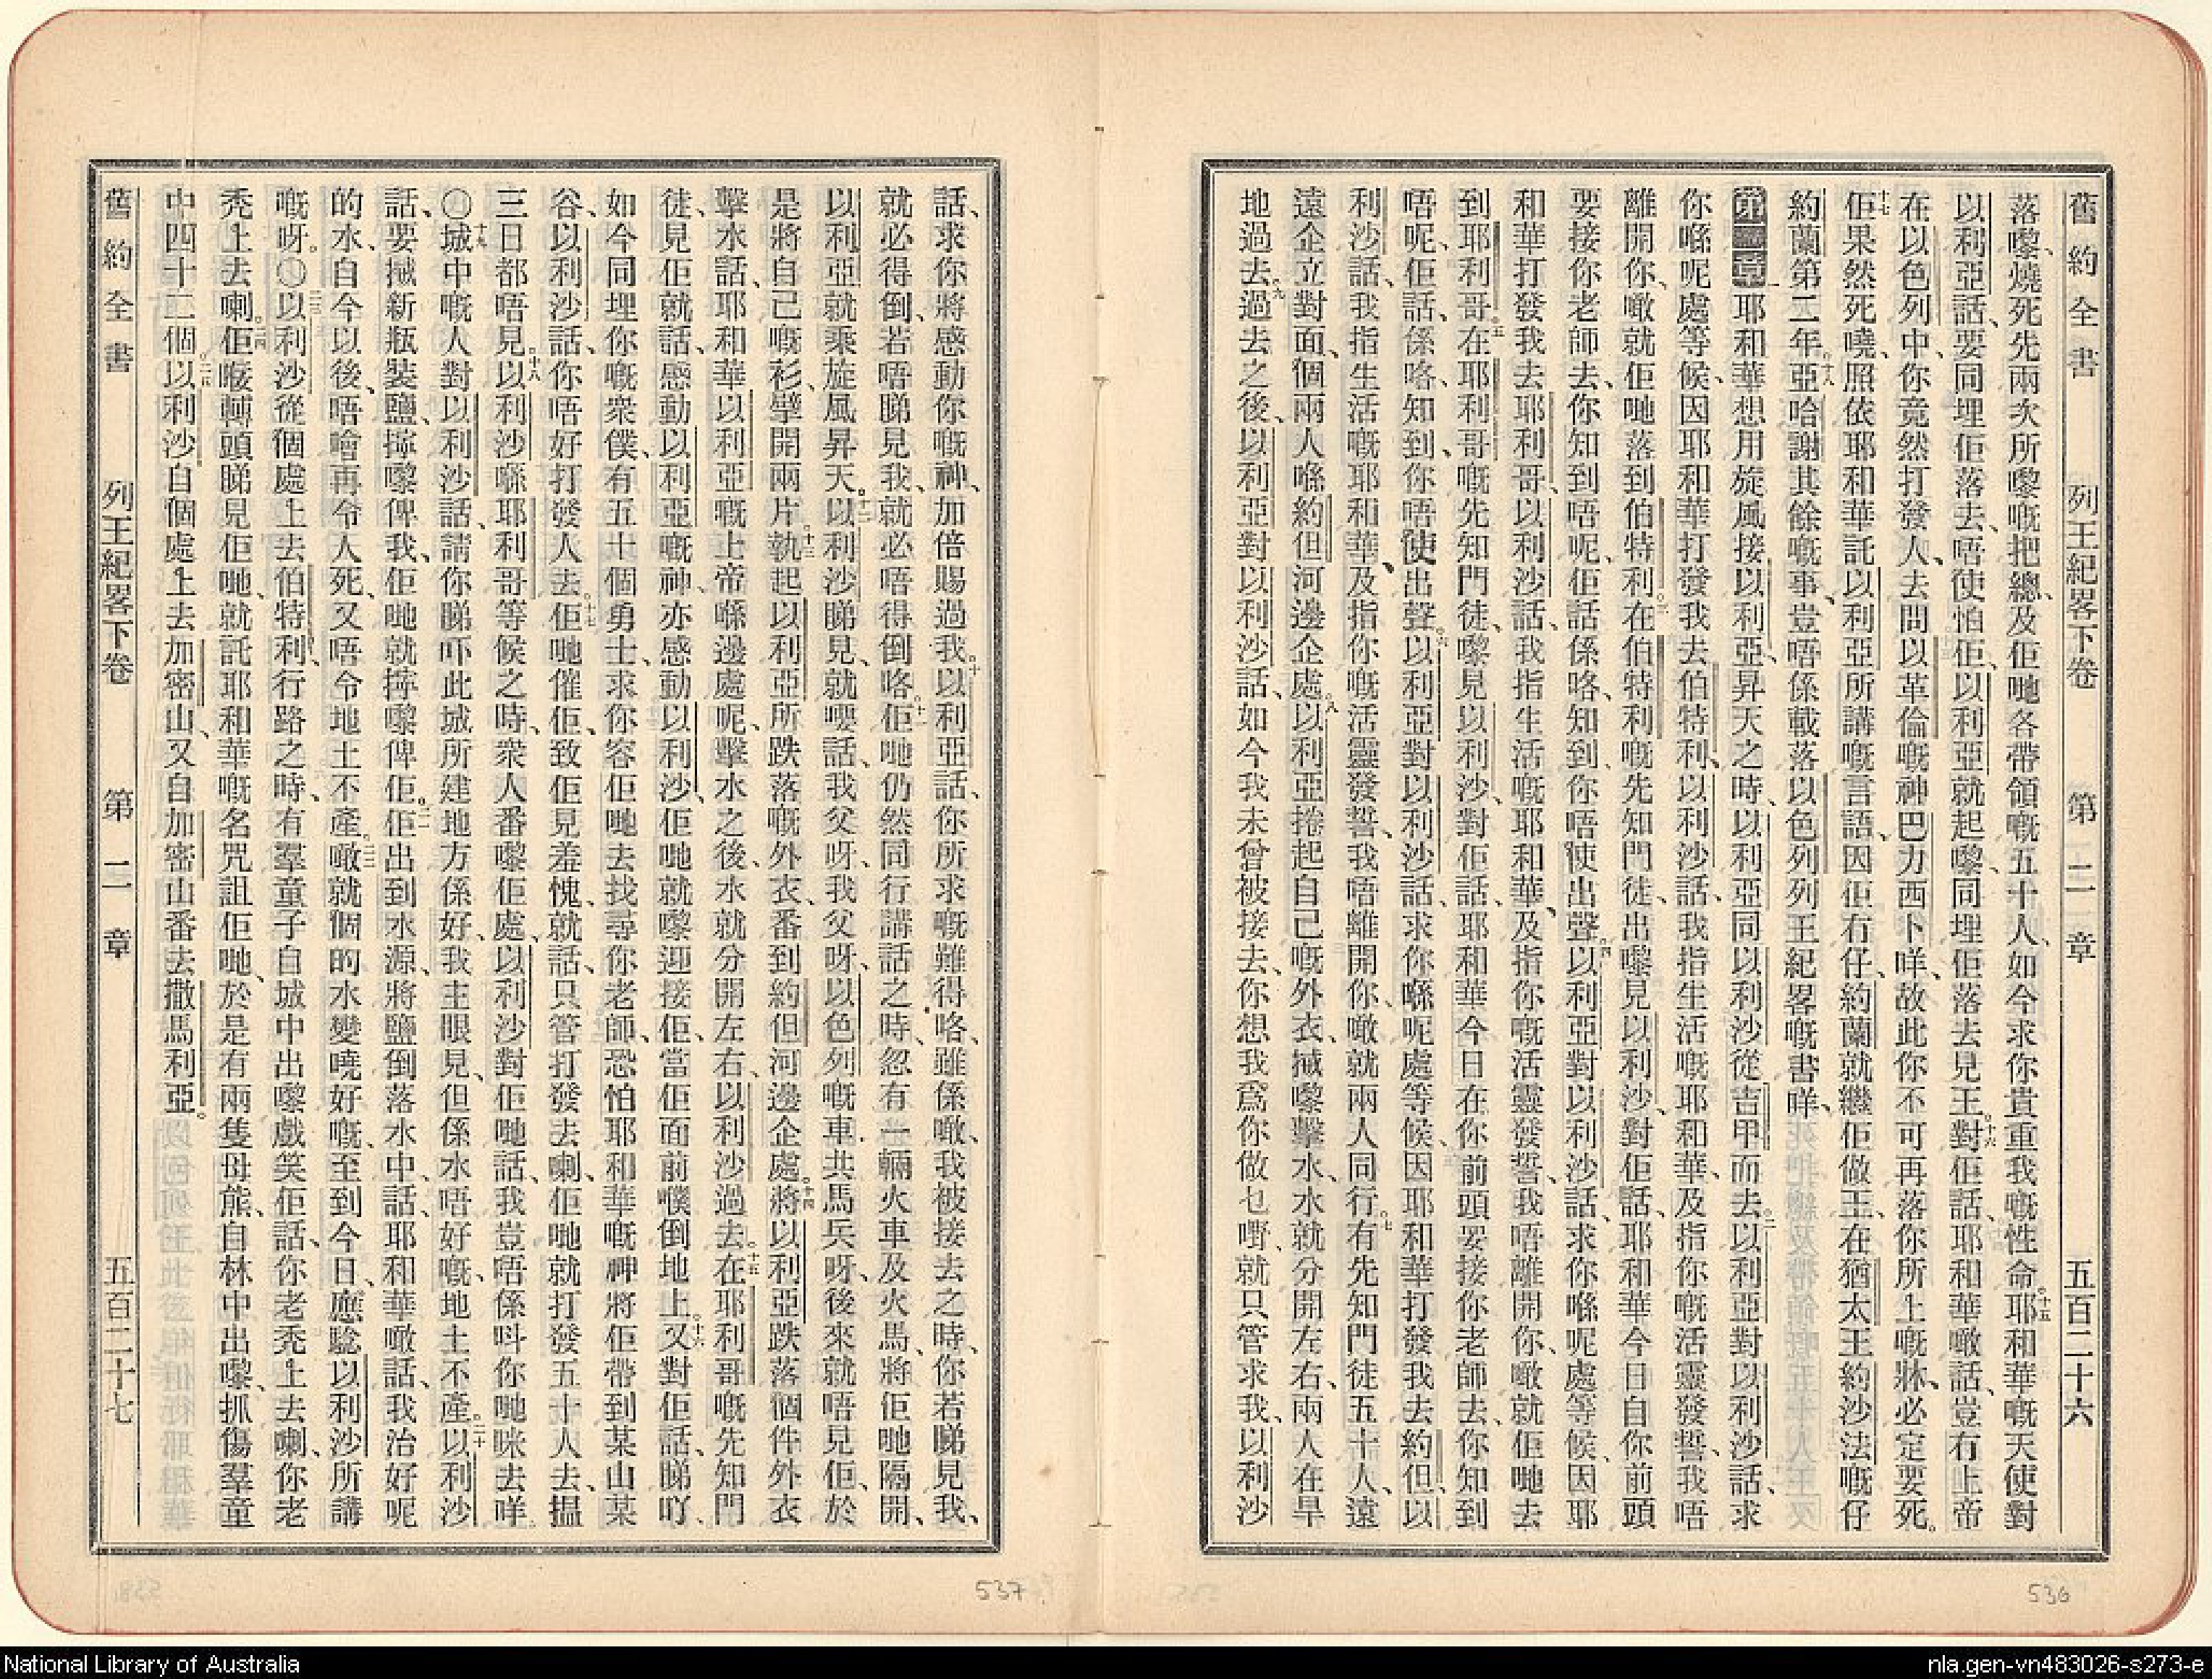 舊約全書 列王紀畧下卷 第二章 五百二十六
落嚟、燒死先兩次所嚟嘅把總、及佢哋各帶領嘅五十人、如今求你貴重我嘅性命。十五耶和華嘅天使對
以利亞話、要同埋佢落去、唔使怕佢、以利亞就起嚟、同埋佢落去見王。十六對佢話、耶和華噉話、豈冇上帝
在以色列中、你竟然打發人、去問以革倫嘅神巴力西卜咩、故此你不可再落你所上嘅牀、必定要死。
十七佢果然死嘵、照依耶和華託以利亞所講嘅言語、因佢冇仔、約蘭就繼佢做王、在猶太王約沙法嘅仔
約蘭第二年。十八亞哈謝其餘嘅事、豈唔係載落以色列列王紀畧嘅書咩、
第二章 一耶和華想用旋風接以利亞、昇天之時、以利亞同以利沙從吉甲而去。二以利亞對以利沙話、求
你喺呢處等候、因耶和華打發我去伯特利、以利沙話、我指生活嘅耶和華、及指你嘅活靈發誓、我唔
離開你、噉就佢哋落到伯特利。三在伯特利嘅先知門徒、出嚟見以利沙、對佢話、耶和華今日自你前頭
要接你老師去、你知到唔呢、佢話係咯、知到、你唔使出聲。四以利亞對以利沙話、求你喺呢處等候、因耶
和華打發我去耶利哥、以利沙話、我指生活嘅耶和華、及指你嘅活靈發誓、我唔離開你、噉就佢哋去
到耶利哥。五在耶利哥嘅先知門徒、嚟見以利沙、對佢話、耶和華今日在你前頭要接你老師去、你知到
唔呢、佢話、係咯、知到、你唔使出聲。六以利亞對以利沙話、求你喺呢處等候、因耶和華打發我去約但、以
利沙話、我指生活嘅耶和華、及指你嘅活靈發誓、我唔離開你、噉就兩人同行。七有先知門徒五十人、遠
遠企立對面、個兩人喺約但河邊企處。八以利亞捲起自己嘅外衣、搣嚟擊水、水就分開左右、兩人在旱
地過去。九過去之後、以利亞對以利沙話、如今我未曾被接去、你想我爲你做乜嘢、就只管求我、以利沙
話、求你將感動你嘅神、加倍賜過我。十以利亞話、你所求嘅難得咯、雖係噉、我被接去之時、你若睇見我、
就必得倒、若唔睇見我、就必唔得倒咯。十一佢哋仍然同行講話之時、忽有一輛火車及火馬、將佢哋隔開、
以利亞就乘旋風昇天。十二以利沙睇見、就嘐話、我父呀、我父呀、以色列嘅車、共馬兵呀、後來就唔見佢、於
是將自己嘅衫、擘開兩片。十三執起以利亞所跌落嘅外衣、番到約但河邊企處。十四將以利亞跌落個件外衣
擊水話、耶和華以利亞嘅上帝喺邊處呢、擊水之後、水就分開左右、以利沙過去。十五在耶利哥嘅先知門
徒、見佢就話、感動以利亞嘅神、亦感動以利沙、佢哋就嚟迎接佢、當佢面前噗倒地上。十六又對佢話、睇吖、
如今同埋你嘅衆僕、有五十個勇士、求你容佢哋去找尋你老師、恐怕耶和華嘅神將佢帶到某山某
谷、以利沙話、你唔好打發人去。十七佢哋催佢、致佢見羞愧、就話、只管打發去喇、佢哋就打發五十人去、搵
三日都唔見。十八以利沙喺耶利哥等候之時、衆人番嚟佢處、以利沙對佢哋話、我豈唔係呌你哋咪去咩。
○十九城中嘅人對以利沙話、請你睇吓此城所建地方係好、我主眼見、但係水唔好嘅、地土不產。二十以利沙
話、要搣新瓶裝鹽、擰嚟俾我、佢哋就擰嚟俾佢。二一佢出到水源、將鹽倒落水中、話、耶和華噉話、我治好呢
的水、自今以後、唔噲再令人死、又唔令地土不產。二二噉就個的水變嘵好嘅、至到今日、應驗以利沙所講
嘅呀。○二三以利沙從個處上去伯特利、行路之時、有羣童子自城中出嚟、戲笑佢話、你老禿上去喇、你老
禿上去喇。二四佢擰轉頭睇見佢哋、就託耶和華嘅名咒詛佢哋、於是有兩隻母熊、自林中出嚟、抓傷羣童
中四十二個。二五以利沙自個處上去加密山、又自加密山番去撒馬利亞。
舊約全書 列王紀畧下卷 第二章 五百二十七
537
536
National Library of Australia
nla.gen-vn483026-s273-e